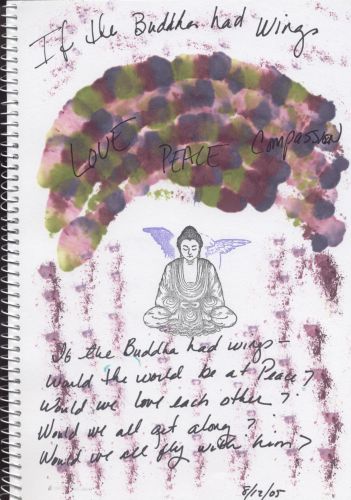 If the Buddha had Wings
LOVE PEACE Compassion
If the Buddha had wings -
Would the world be at Peace?
Would we love each other?
Would we all get along?
Would we all fly with him?
8/12/05